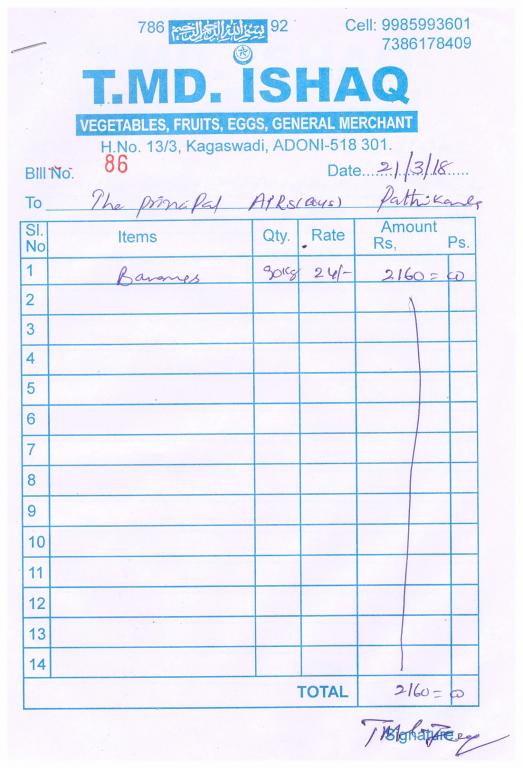 786 بسم الله الرحمن الرحيم 92
Cell: 9985993601
7386178409
T.MD. ISHAQ
VEGETABLES, FRUITS, EGGS, GENERAL MERCHANT
H.No. 13/3, Kagaswadi, ADONI-518 301.
Bill No. 86 Date 21/3/18
To The principal APRS(Boys)
Sl. No Items Qty. Rate Amount Rs, Ps.
1 Bananes 90Kg 24/- 2160=00
2
3
4
5
6
7
8
9
10
11
12
13
14
TOTAL 2160=00
Signature